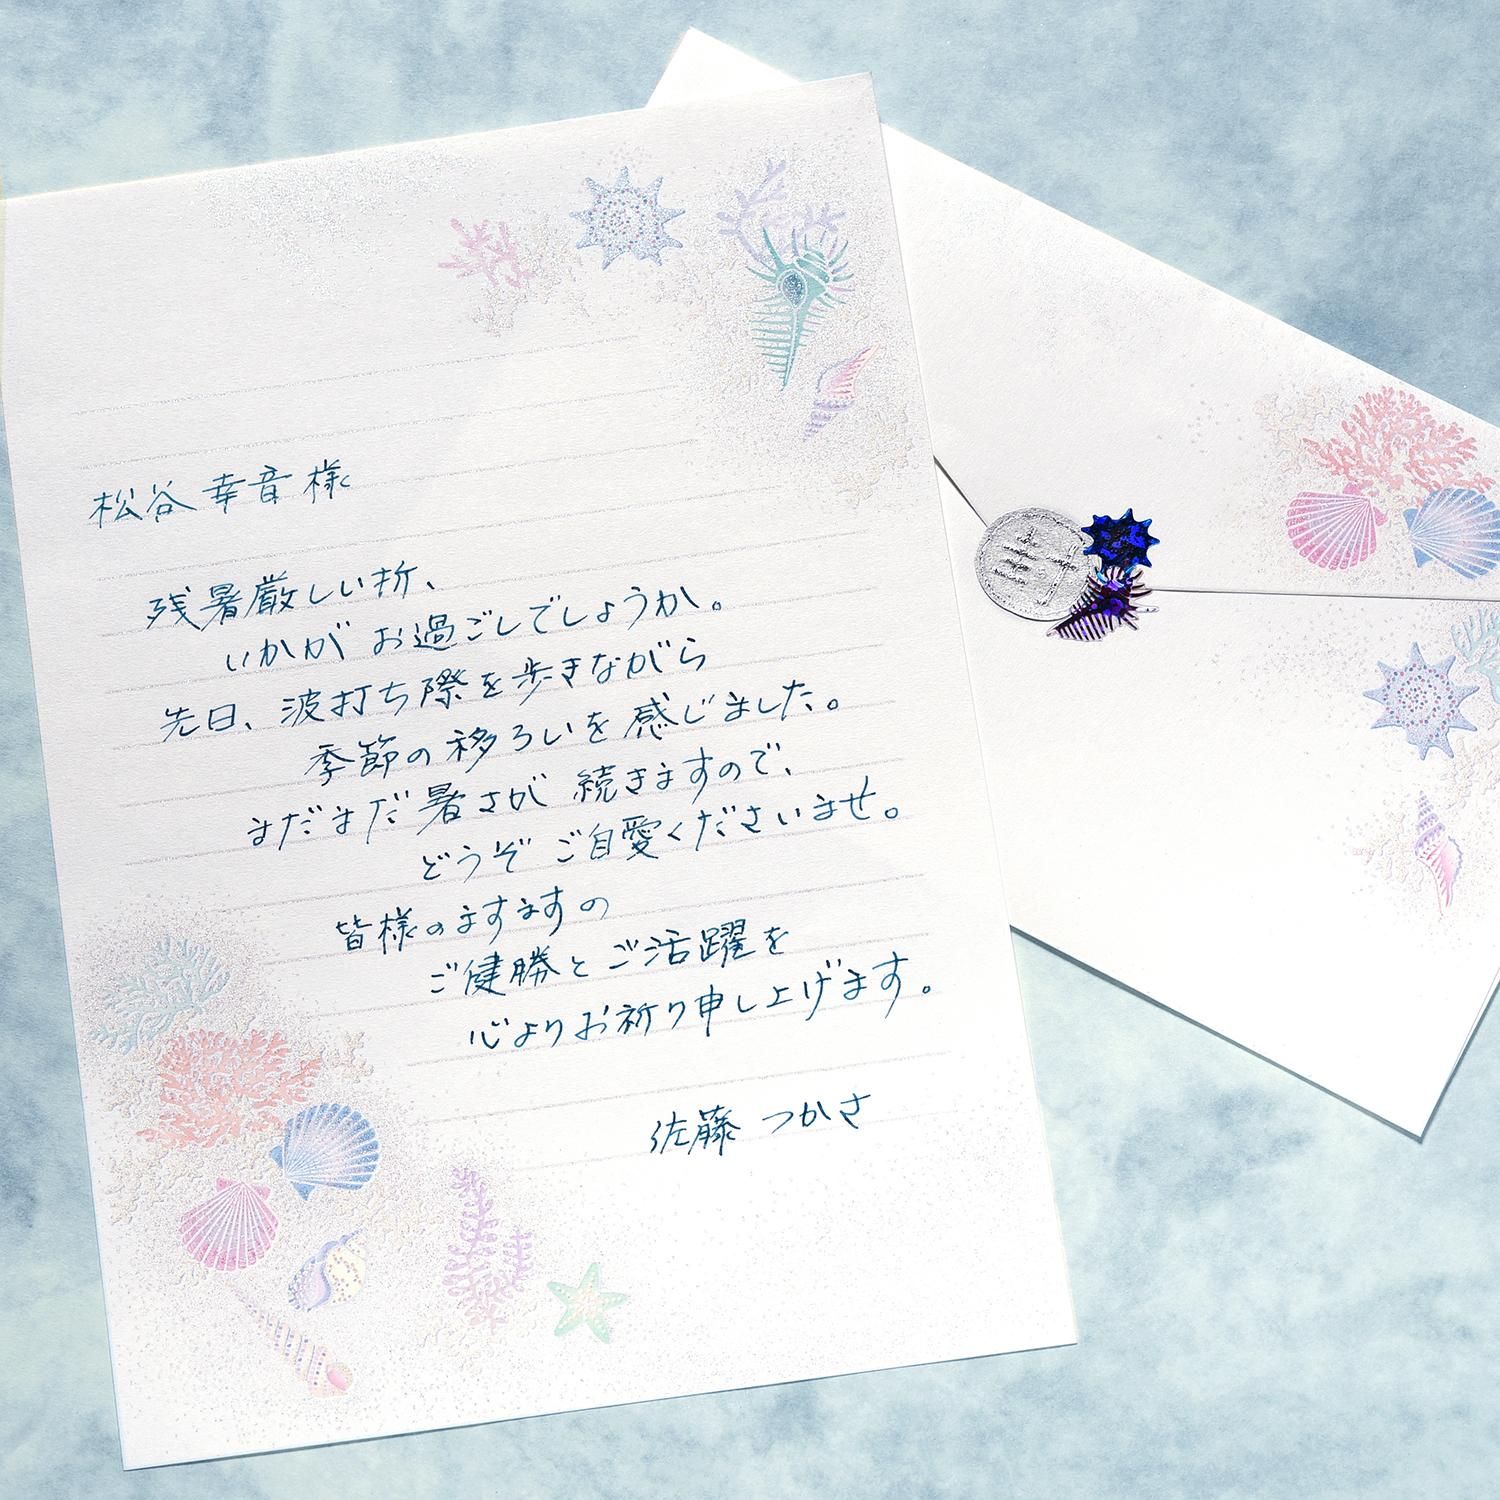 松谷 幸音 様
残暑厳しい折、
いかが お過ごしでしょうか。
先日、波打ち際を歩きながら
季節の移ろいを感じました。
まだまだ暑さが続きますので、
どうぞ ご自愛くださいませ。
皆様のますますの
ご健勝とご活躍を
心よりお祈り申し上げます。
佐藤 つかさ